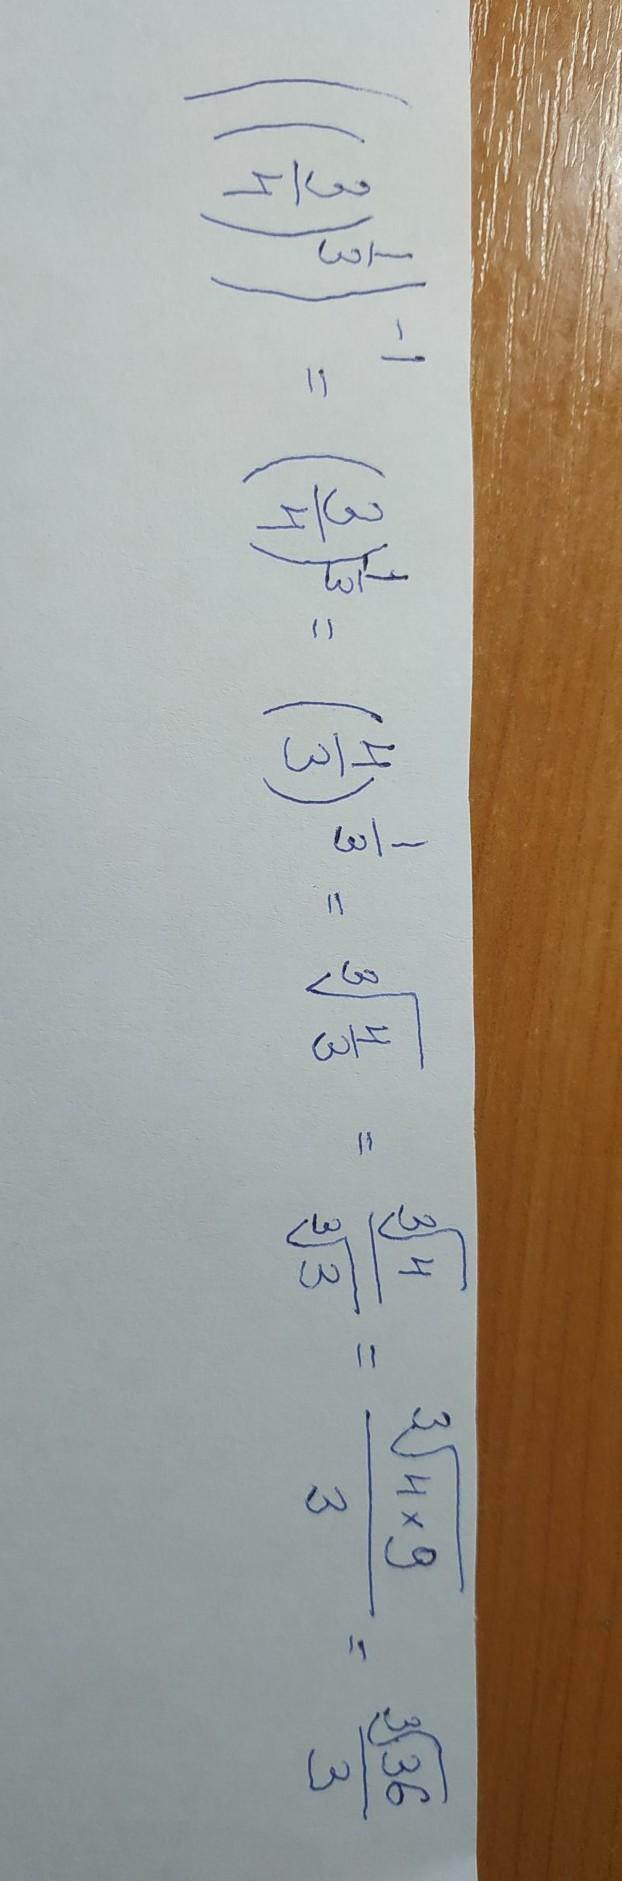 ((3/4)^(1/3))^-1 = (3/4)^(1/3) = (4/3)^(1/3) = ∛(4/3) = ∛4/∛3 = ∛(4×9)/3 = ∛36/3